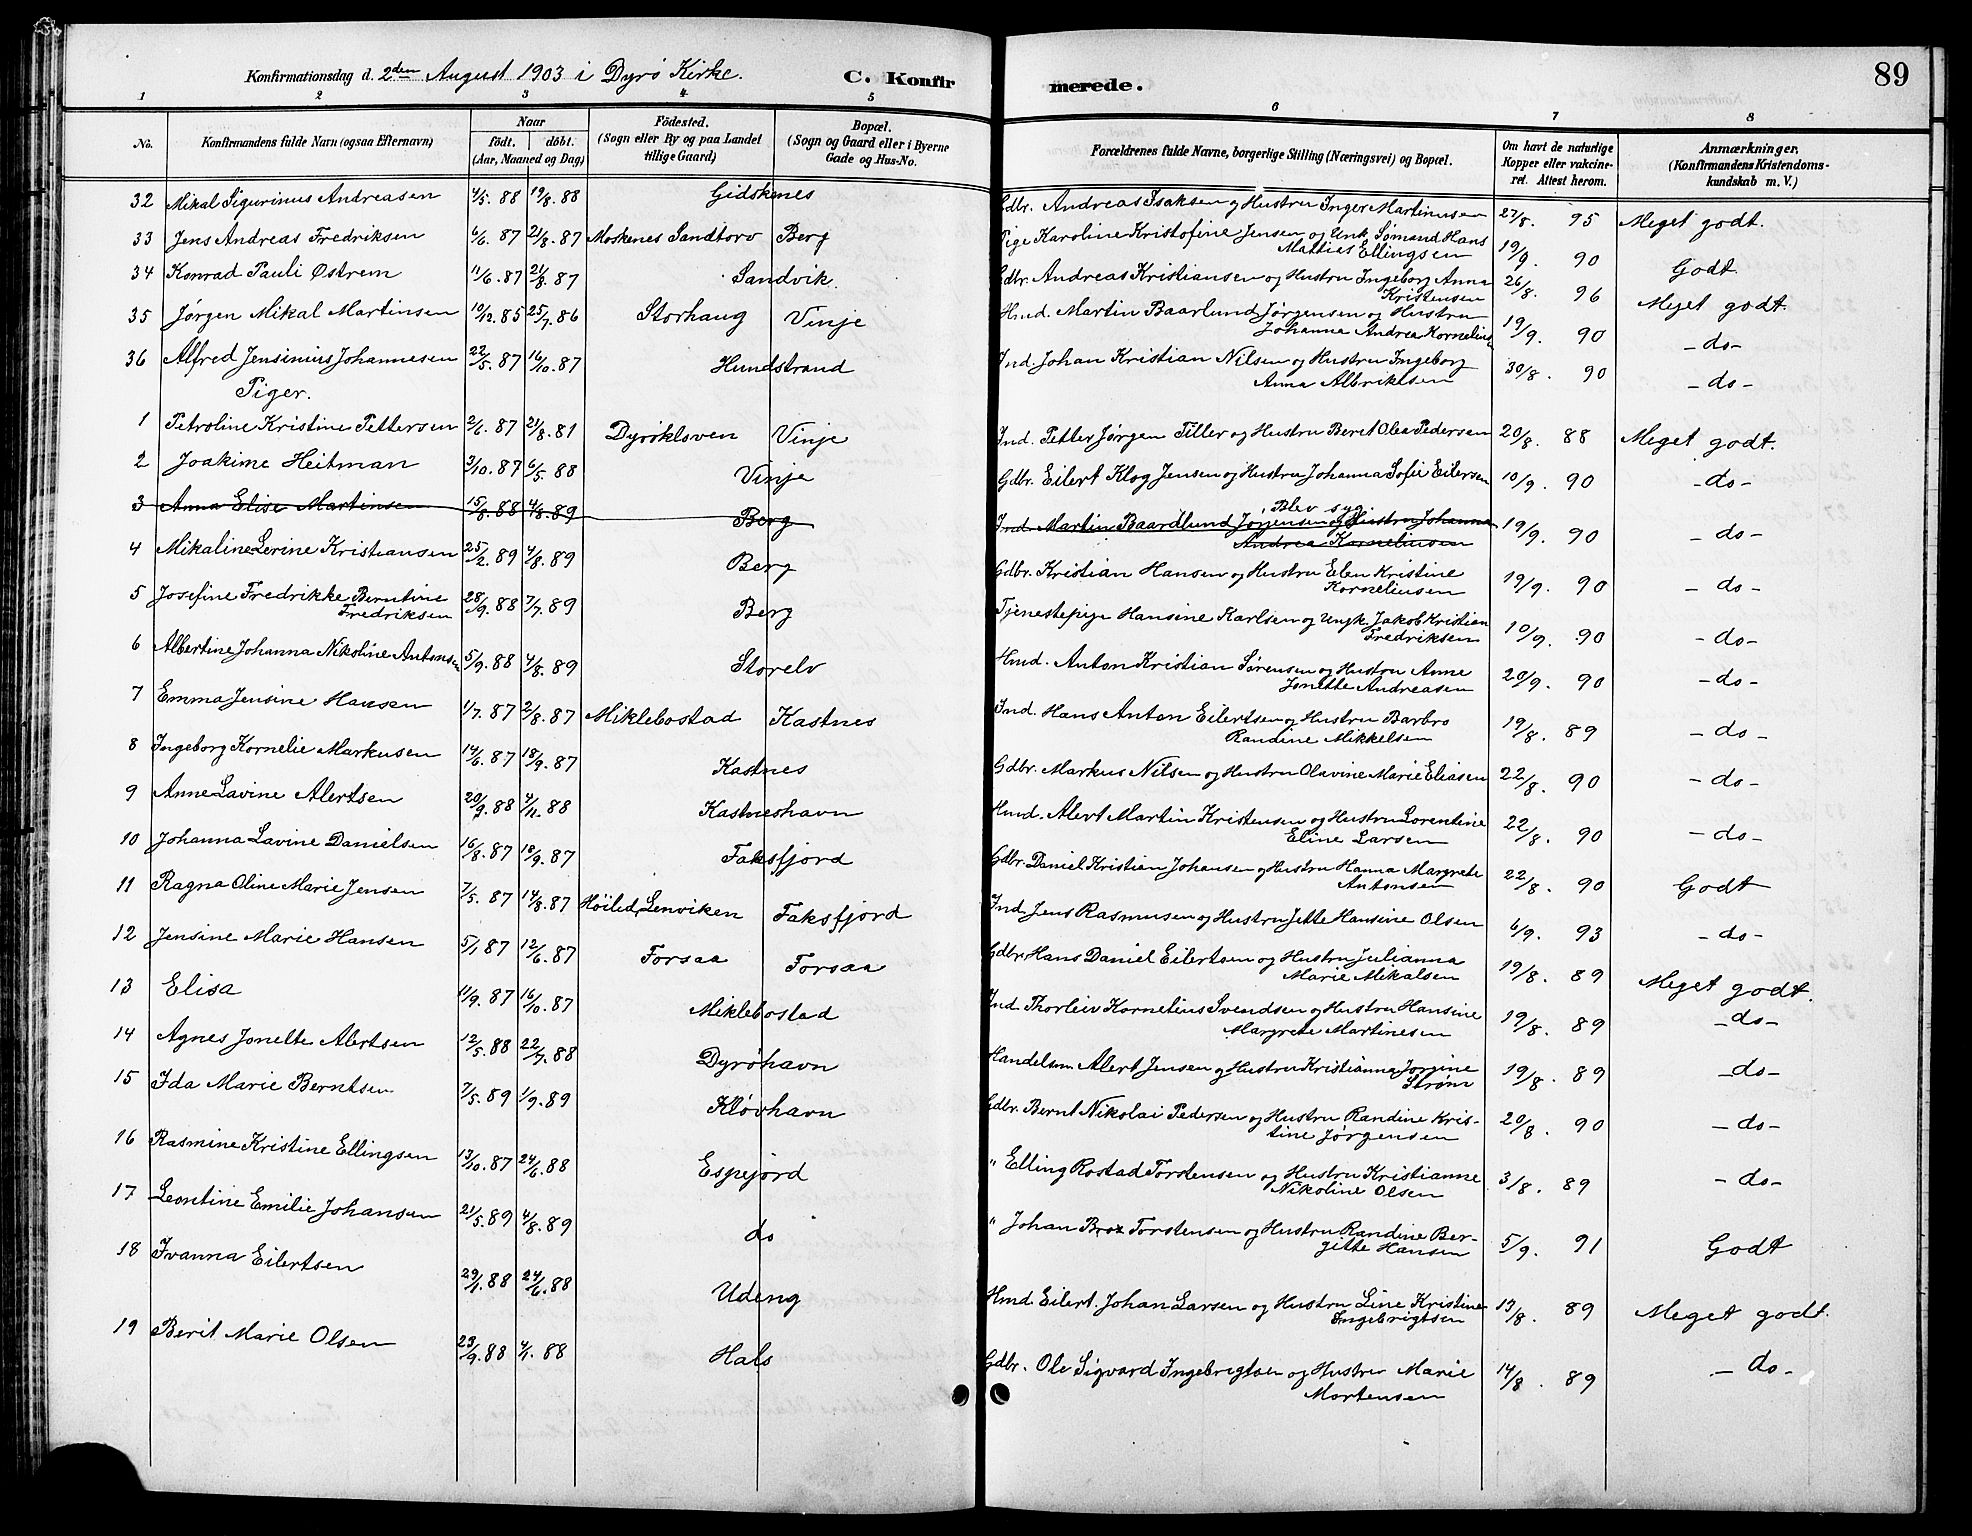 Konfirmationsdag d. 2den August 1903 i Dyrø Kirke. C. Konfirmerede. 89
1 2 3 4 5 6 7 8
No. | Konfirmandens fulde Navn (ogsaa Efternavn) | Naar født. døbt. (Aar, Maaned og Dag) | Fødested. (Sogn eller By og paa Landet tillige Gaard) | Bopæl. (Sogn og Gaard eller i Byerne Gade og Hus-No. | Forældrenes fulde Navne, borgerlige Stilling (Næringsvei) og Bopæl. | Om havt de naturlige Kopper eller vakcineret. Attest herom. | Anmærkninger, (Konfirmandens Kristendomskundskab m. V.)
32 Mikal Sigurinus Andreasen 4/5. 88 19/8. 88 Gidskenes Gdbr. Andreas Isaksen og Hustru Inger Martinusen 27/8. 95 Meget godt.
33 Jens Andreas Fredriksen 6/6. 87 21/8. 87 Moskenes Sandtorv Berg Pige Karoline Kristofine Jensen og Unk. Sømand Hans
Mathias Ellingsen 19/9. 90 Godt
34 Konrad Pauli Østrem 11/6. 87 21/8. 87 Sandvik. Gdbr. Andreas Kristiansen og Hustru Ingeborg Anna
Kristensen 26/8. 96 Meget godt.
35 Jørgen Mikal Martinsen 10/12. 85 25/7. 86 Storhaug Vinje Hmd. Martin Baarlund Jørgensen og Hustru
Johanna Andrea Kornelius 19/9. 90 -do-
36 Alfred Jensinius Johannesen 22/5. 87 16/10. 87 Hundstrand Ind. Johan Kristian Nilsen og Hustru Ingeborg
Anna Albriktsen 30/8. 90 -do-
Piger.
1 Petroline Kristine Pettersen 2/6. 87 21/8. 81 Dyrøkløven Vinje Ind. Petter Jørgen Tiller og Hustru Beret Olea Pedersen 20/8. 88 Meget godt.
2 Joakime Heitman 3/10. 87 6/5. 88 Vinje Gdbr. Eilert Klog Jensen og Hustru Johanna Sofie Eilersen 10/9. 90 -do-
Blev syg.
3 Anna Elise Martinsen 15/8. 88 4/8. 89 Berg Ind. Martin Baardlund Jørgensen og Hustru Johanna
Andrea Korneliusen 19/9. 90 -do-
4 Mikaline Lerine Kristiansen 25/2. 89 4/8. 89 Berg Gdbr. Kristian Hansen og Hustru Elen Kristine
Korneliusen 19/9. 90 -do-
5 Josefine Fredrikke Berntine
Fredriksen 28/9. 88 7/7. 89 Berg Tjenestepige Hansine Karlsen og Ungk. Jakob Kristian
Fredriksen 10/9. 90 -do-
6 Albertine Johanna Nikoline Antonsen 5/9. 88 4/8. 89 Storelv Hmd. Anton Kristian Sørensen og Hustru Anne
Jonette Andreasen 20/9. 90 -do-
7 Emma Jensine Hansen 1/7. 87 2/8. 87 Miklebostad Kastnes Ind. Hans Anton Eilertsen og Hustru Barbro
Randine Mikkelsen 19/8. 89 -do-
8 Ingeborg Kornelie Markusen 14/6. 87 18/9. 87 Kastnes Gdbr. Markus Nilsen og Hustru Olavine Marie Eliasen 22/8. 90 -do-
9 Anne Lavine Alertsen 20/9. 88 4/11. 88 Kastneshavn Hmd. Alert Martin Kristensen og Hustru Lorentine
Eline Larsen 22/8. 90 -do-
10 Johanna Lavine Danielsen 16/8. 87 18/9. 87 Faksfjord Gdbr. Daniel Kristian Johansen og Hustru Hanna Margrete
Antonsen 22/8. 90 Godt
11 Ragna Oline Marie Jensen 7/5. 87 14/8. 87 Høiled, Lenviken Faksfjord Ind. Jens Rasmusen og Hustru Jette Hansine Olsen 6/9. 93 -do-
12 Jensine Marie Hansen 5/1 87 12/6. 87 Forsaa Forsaa Gdbr. Hans Daniel Eilertsen og Hustru Julianna
Marie Mikalsen 19/8. 89 Meget godt.
13 Elisa 11/9. 87 16/10. 87 Miklebostad Ind. Thorleiv Kornelius Svendsen og Hustru Hansine
Margrete Martinesen 19/8. 89 -do-
14 Agnes Jonette Alertsen 12/5. 88 22/7. 88 Dyrøhavn Handelsm. Alert Jensen og Hustru Kristianna Jorgine
Strøm 19/8. 89 -do-
15 Ida Marie Berntsen 7/5. 89 1/9. 89 Kløvhavn Gdbr. Bernt Nikolai Pedersen og Hustru Randine Kris-
tine Jørgensen 20/8. 90 -do-
16 Rasmine Kristine Ellingsen 13/10. 87 24/6. 88 Espejord " Elling Rostad Torstensen og Hustru Kristianne
Nikoline Olsen 31/8. 89 -do-
17 Leontine Emilie Johansen 21/5. 89 4/8. 89 do " Johan Brox Torstensen og Hustru Randine Ber-
gitte Hansen 5/9. 91 Godt
18 Ivanna Eilertsen 29/1. 88 24/6. 88 Udeng Hmd. Eilert Johan Larsen og Hustru Line Kristine
Ingebrigtsen 13/8. 89 Meget godt.
19 Berit Marie Olsen 23/9. 88 4/1. 88 Hals Gdbr. Ole Sigvard Ingebregtsen og Hustru Marie
Mortensen 14/8. 89 -do-